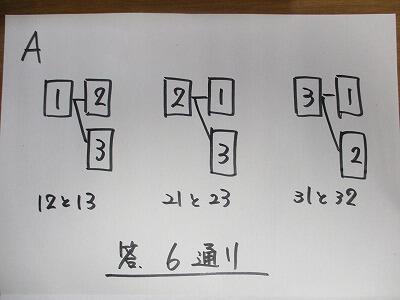 A
1 2 2 1 3 1
3 3 2
12と13 21と23 31と32
答. 6通り